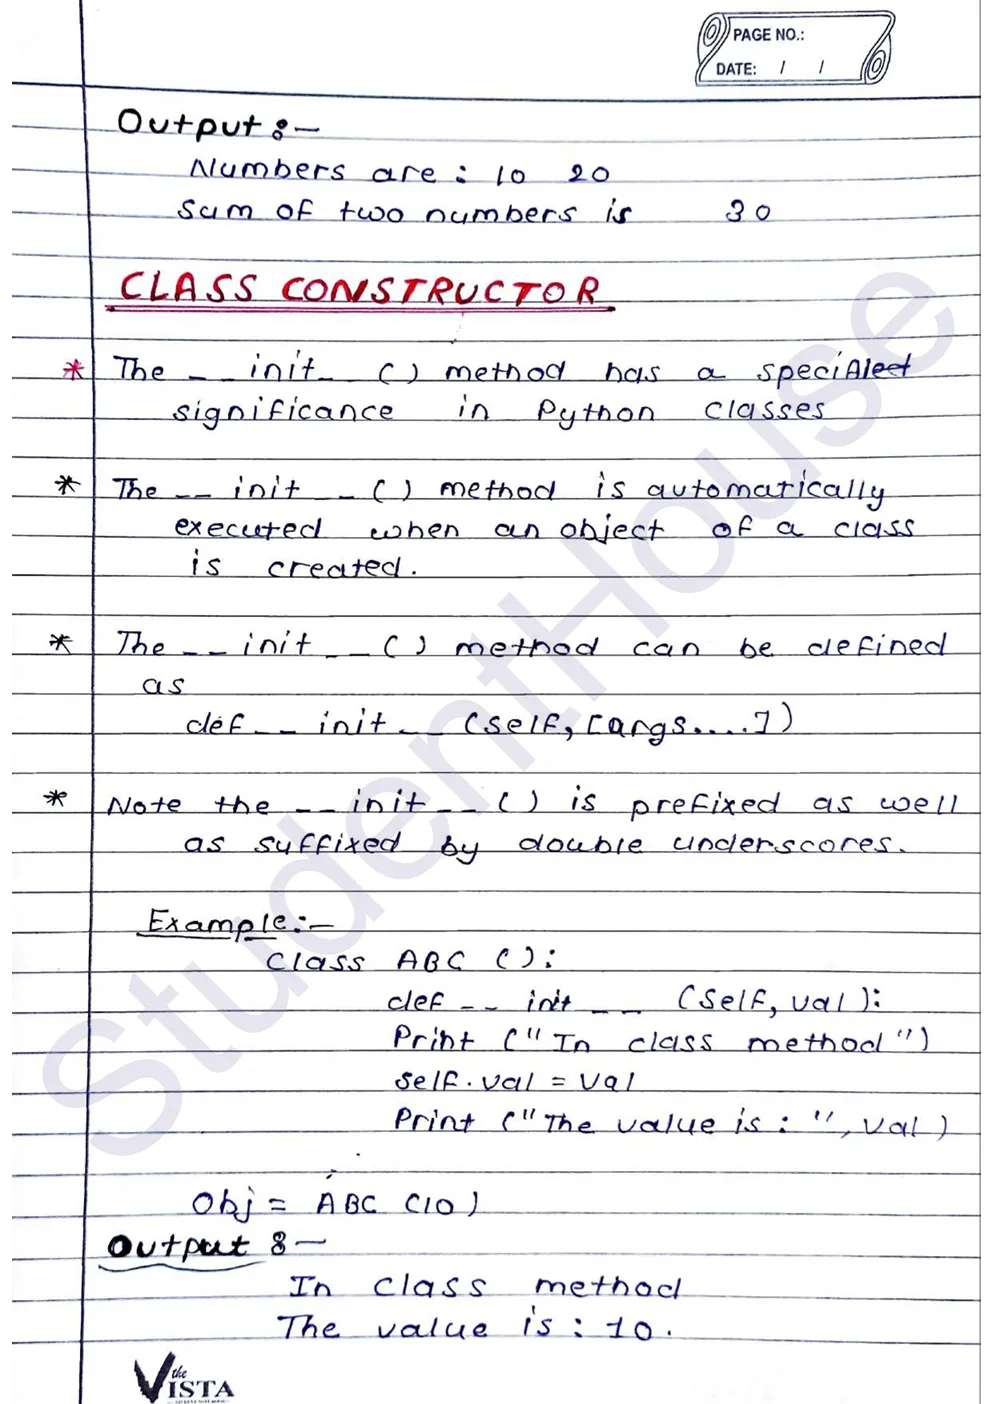 PAGE NO.:
DATE: / /
Output :-
Numbers are : 10 20
Sum of two numbers is 30
CLASS CONSTRUCTOR
* The __ init__ () method has a special
significance in Python classes
* The __ init __ () method is automatically
executed when an object of a class
is created.
* The __ init __ () method can be defined
as
def __ init __ (self, [args....])
* Note the __ init __ () is prefixed as well
as suffixed by double underscores.
Example:-
Class ABC ():
def __ init __ (self, val):
Print ("In class method")
self.val = val
Print ("The value is : ", val)
Obj = ABC (10)
Output :-
In class method
The value is : 10.
the
VISTA
StudentHouse